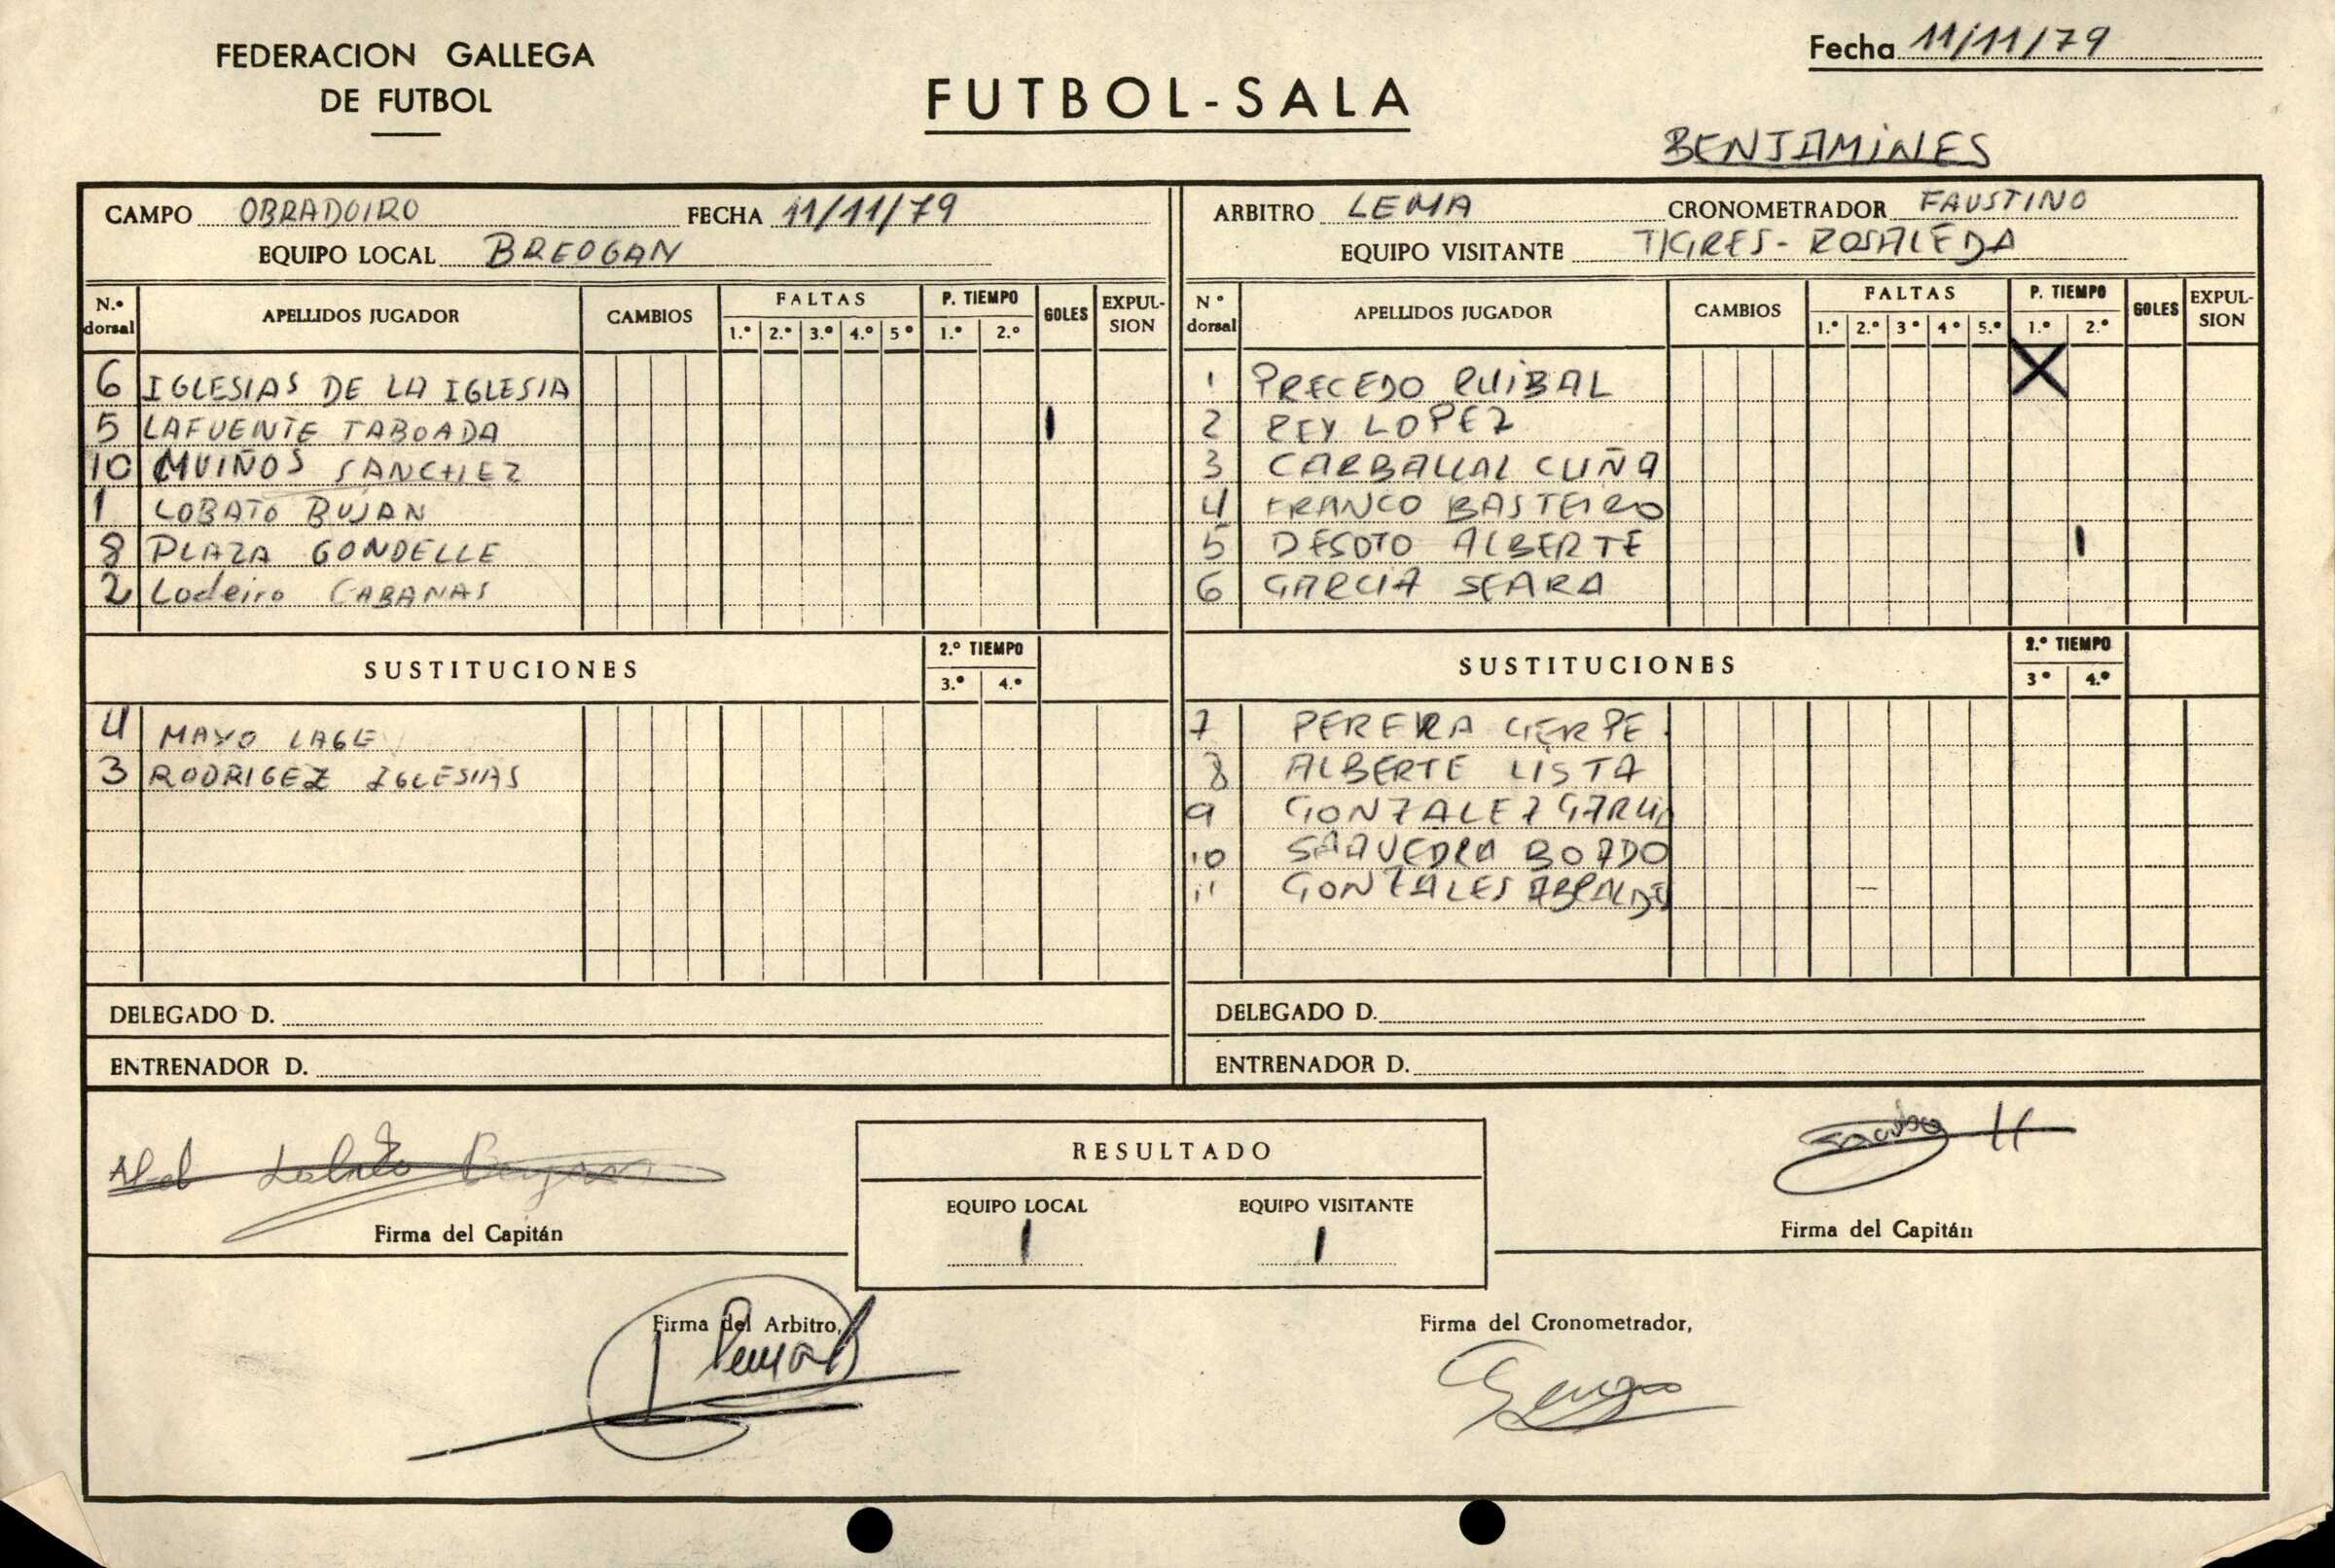 FEDERACION GALLEGA
DE FUTBOL
FUTBOL-SALA
Fecha 11/11/79
BENJAMINES
CAMPO OBRADOIRO FECHA 11/11/79
EQUIPO LOCAL BREOGAN
N.º dorsal APELLIDOS JUGADOR CAMBIOS FALTAS 1.º 2.º 3.º 4.º 5º P. TIEMPO 1.º 2.º GOLES EXPULSION
6 IGLESIAS DE LA IGLESIA
5 LAFUENTE TABOADA 1
10 MUIÑOS SANCHEZ
1 LOBATO BUJAN
8 PLAZA GONDELLE
2 Lodeiro CABANAS
SUSTITUCIONES 2.º TIEMPO 3.º 4.º
4 MAYO LAGE
3 RODRIGEZ IGLESIAS
DELEGADO D.
ENTRENADOR D.
ARBITRO LEMA CRONOMETRADOR FAUSTINO
EQUIPO VISITANTE TIGRES - ROSALEDA
Nº dorsal APELLIDOS JUGADOR CAMBIOS FALTAS 1.º 2.º 3º 4º 5.º P. TIEMPO 1.º 2.º GOLES EXPULSION
1 PRECEDO RUIBAL X
2 REY LOPEZ
3 CARBALLAL CUÑA
4 FRANCO BASTEIRO
5 DESOTO ALBERTE 1
6 GARCIA SEARA
SUSTITUCIONES 2.º TIEMPO 3º 4.º
7 PEREIRA CIERPE
8 ALBERTE LISTA
9 GONZALEZ GARCIA
10 SAAVEDRA BOADO
11 GONZALES
DELEGADO D.
ENTRENADOR D.
Firma del Capitán
RESULTADO
EQUIPO LOCAL EQUIPO VISITANTE
1 1
Firma del Capitán
Firma del Arbitro,
Firma del Cronometrador,